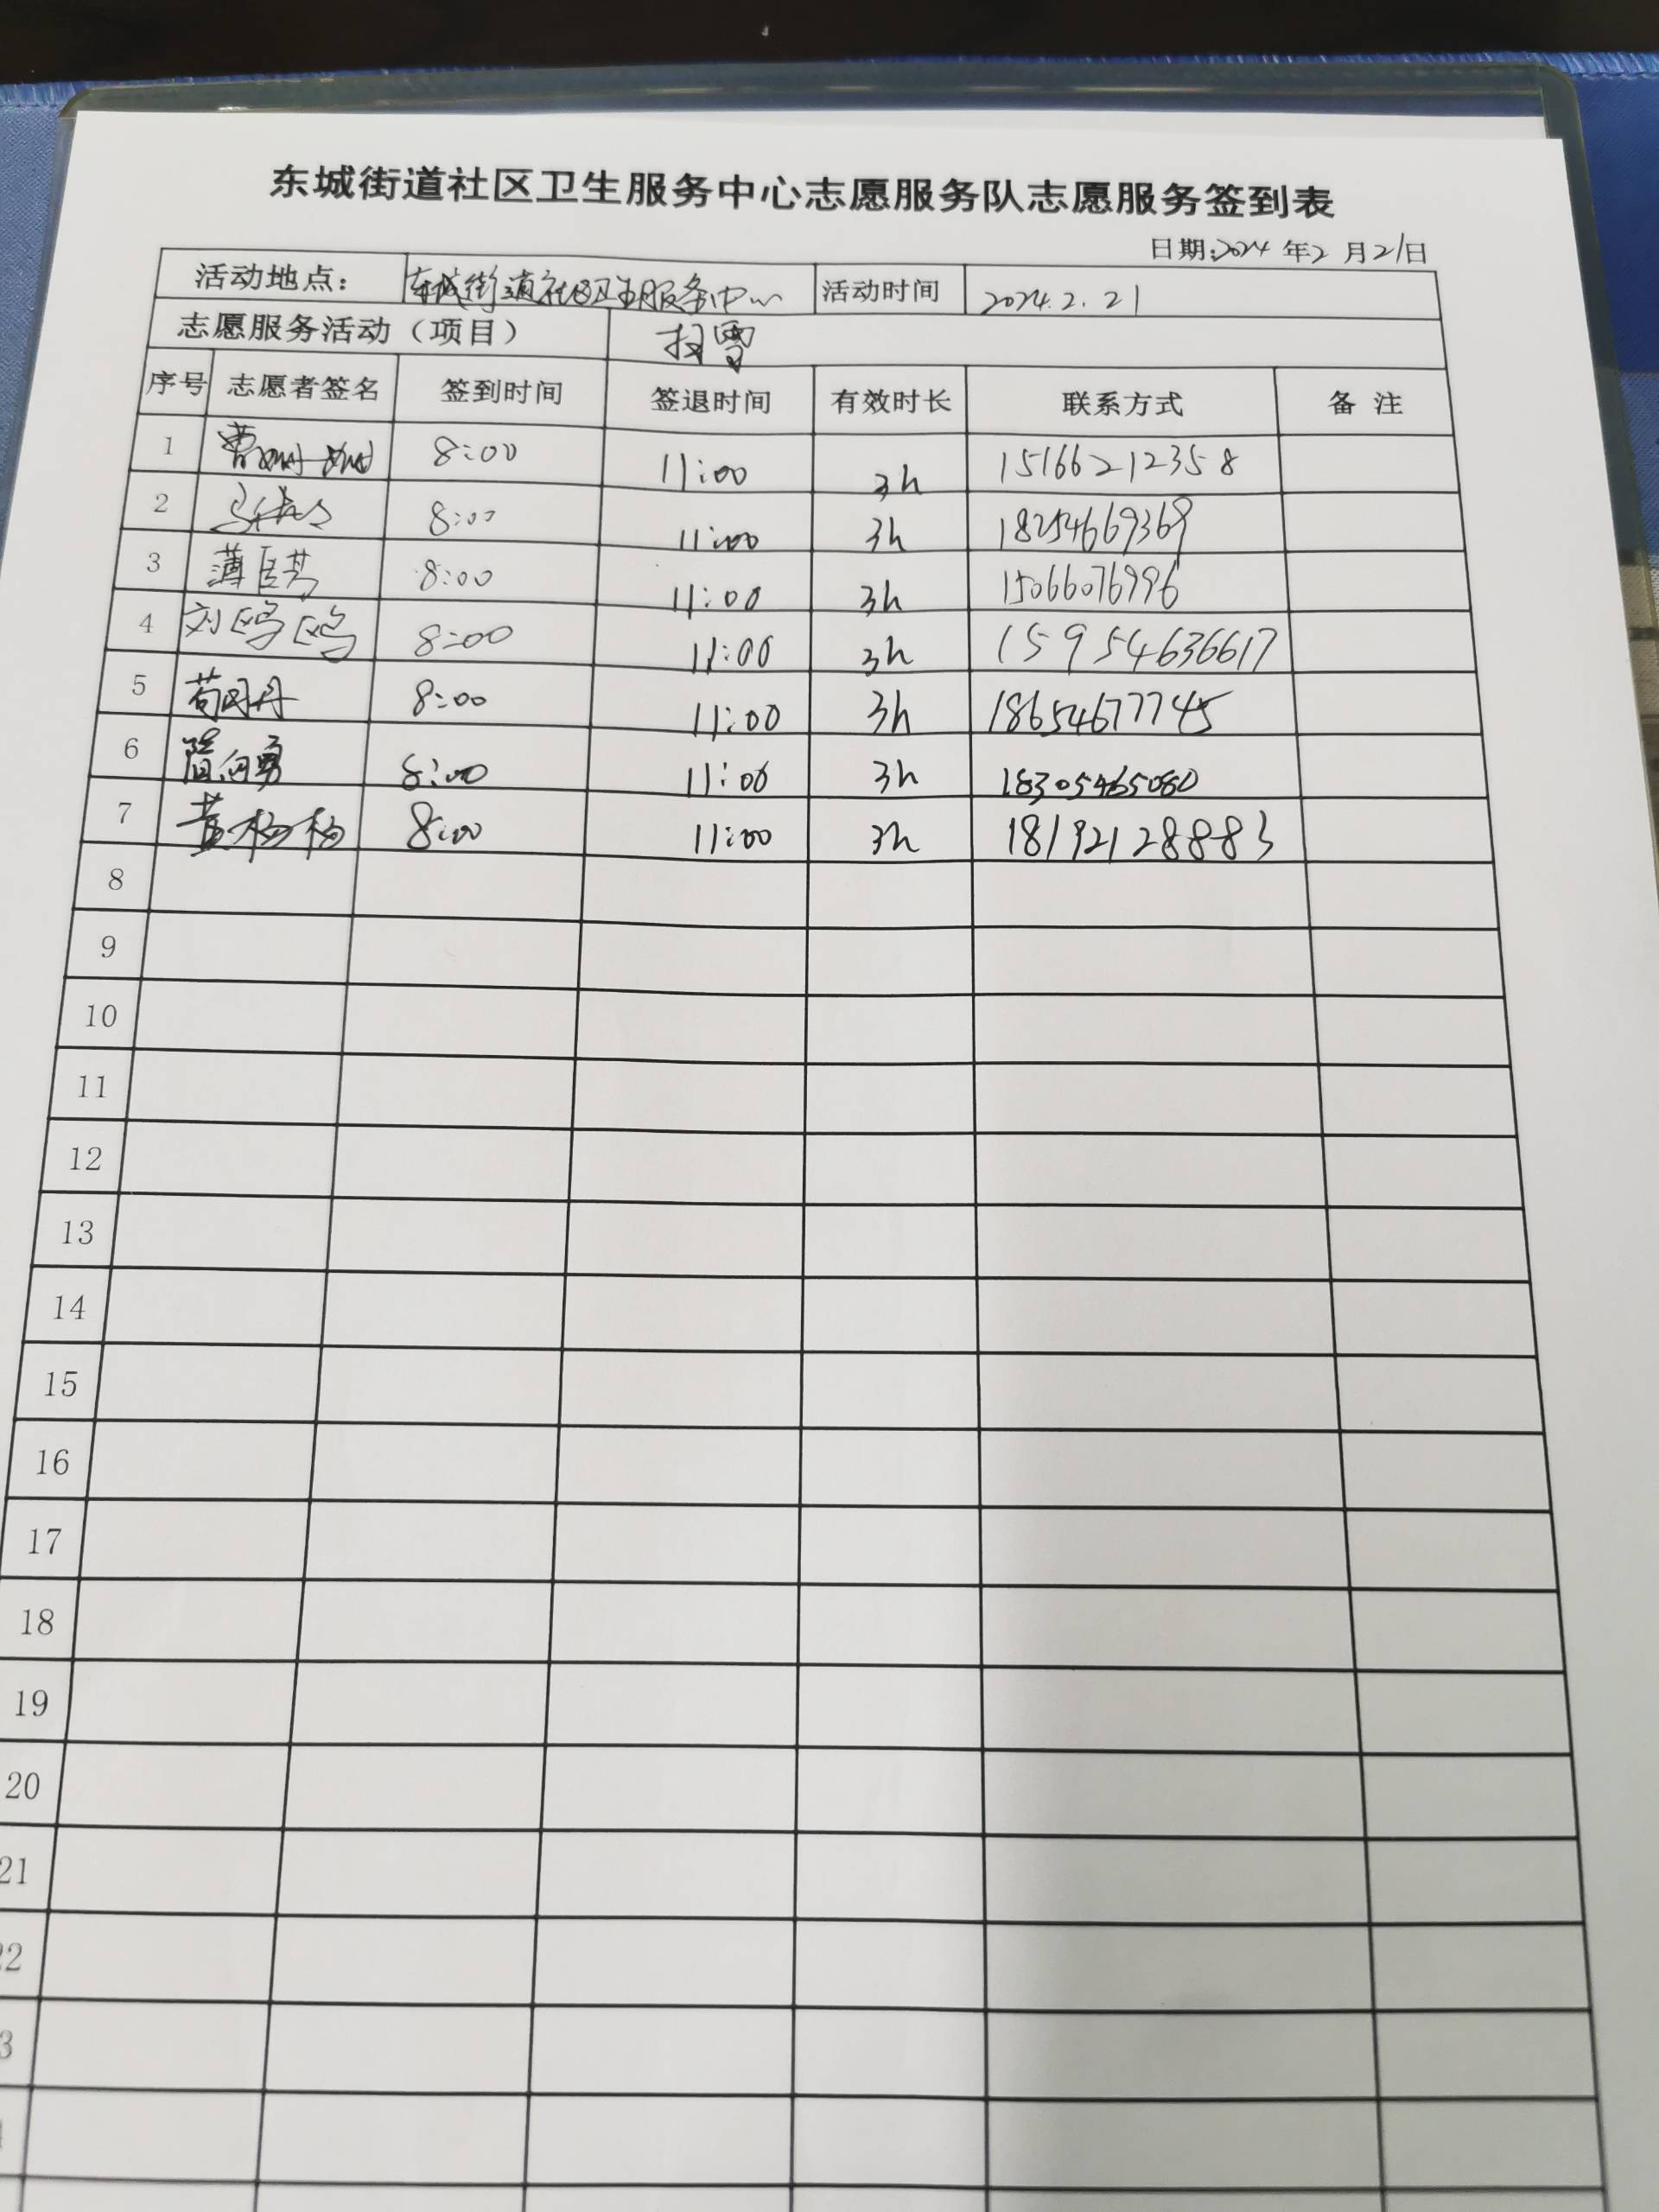 东城街道社区卫生服务中心志愿服务队志愿服务签到表
日期:2024 年2 月21日
活动地点: 东城街道社区卫生服务中心 活动时间 2024.2.21
志愿服务活动（项目） 扫雪
序号 志愿者签名 签到时间 签退时间 有效时长 联系方式 备 注
1 曹 8:00 11:00 3h 15166212358
2 8:00 11:00 3h 18254669369
3 薄 8:00 11:00 3h 15066076996
4 刘鸥鸥 8:00 11:00 3h 15954636617
5 苟丹丹 8:00 11:00 3h 18654677745
6 隋向勇 8:00 11:00 3h 18305465080
7 黄杨杨 8:00 11:00 3h 18192128883
8
9
10
11
12
13
14
15
16
17
18
19
20
21
22
3